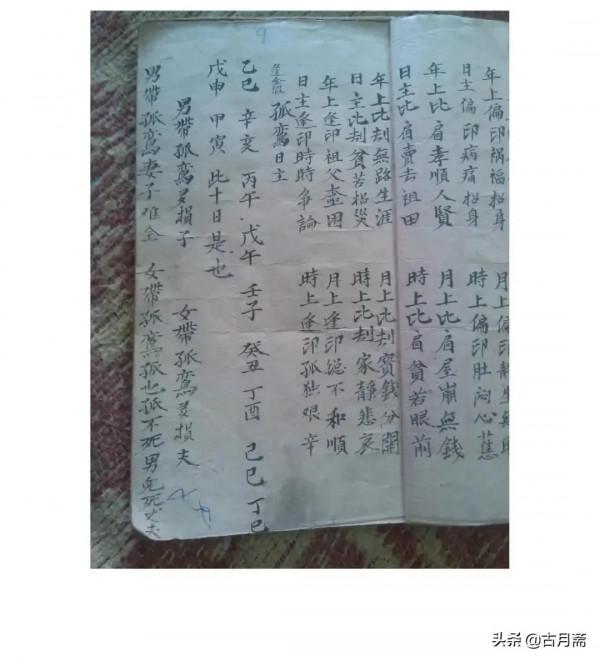 年上偏印禍福招身 月上偏印
日主偏印病痛招身 時上偏印肚闷心蕉
年上比肩孝順人賢 月上比肩屋崩無錢
日主比肩賣去祖田 時上比肩貧苦眼前
年上比刦無路生涯 月上比刦賓錢分開
日主比刦貧苦招災 時上比刦家靜悲哀
年上逢印祖父 月上逢印絕不和順
日主逢印時時争論 時上逢印孤独艰辛
孤鸞日主
乙巳 辛亥 丙午 戊午 壬子 癸丑 丁酉 己巳 丁巳
戊申 甲寅 此十日是也
男帶孤鸞多損子 女帶孤鸞多損夫
男帶孤鸞妻子难全 女帶孤鸞孤也孤不死男兒死丈夫
9
头条 @古月斋